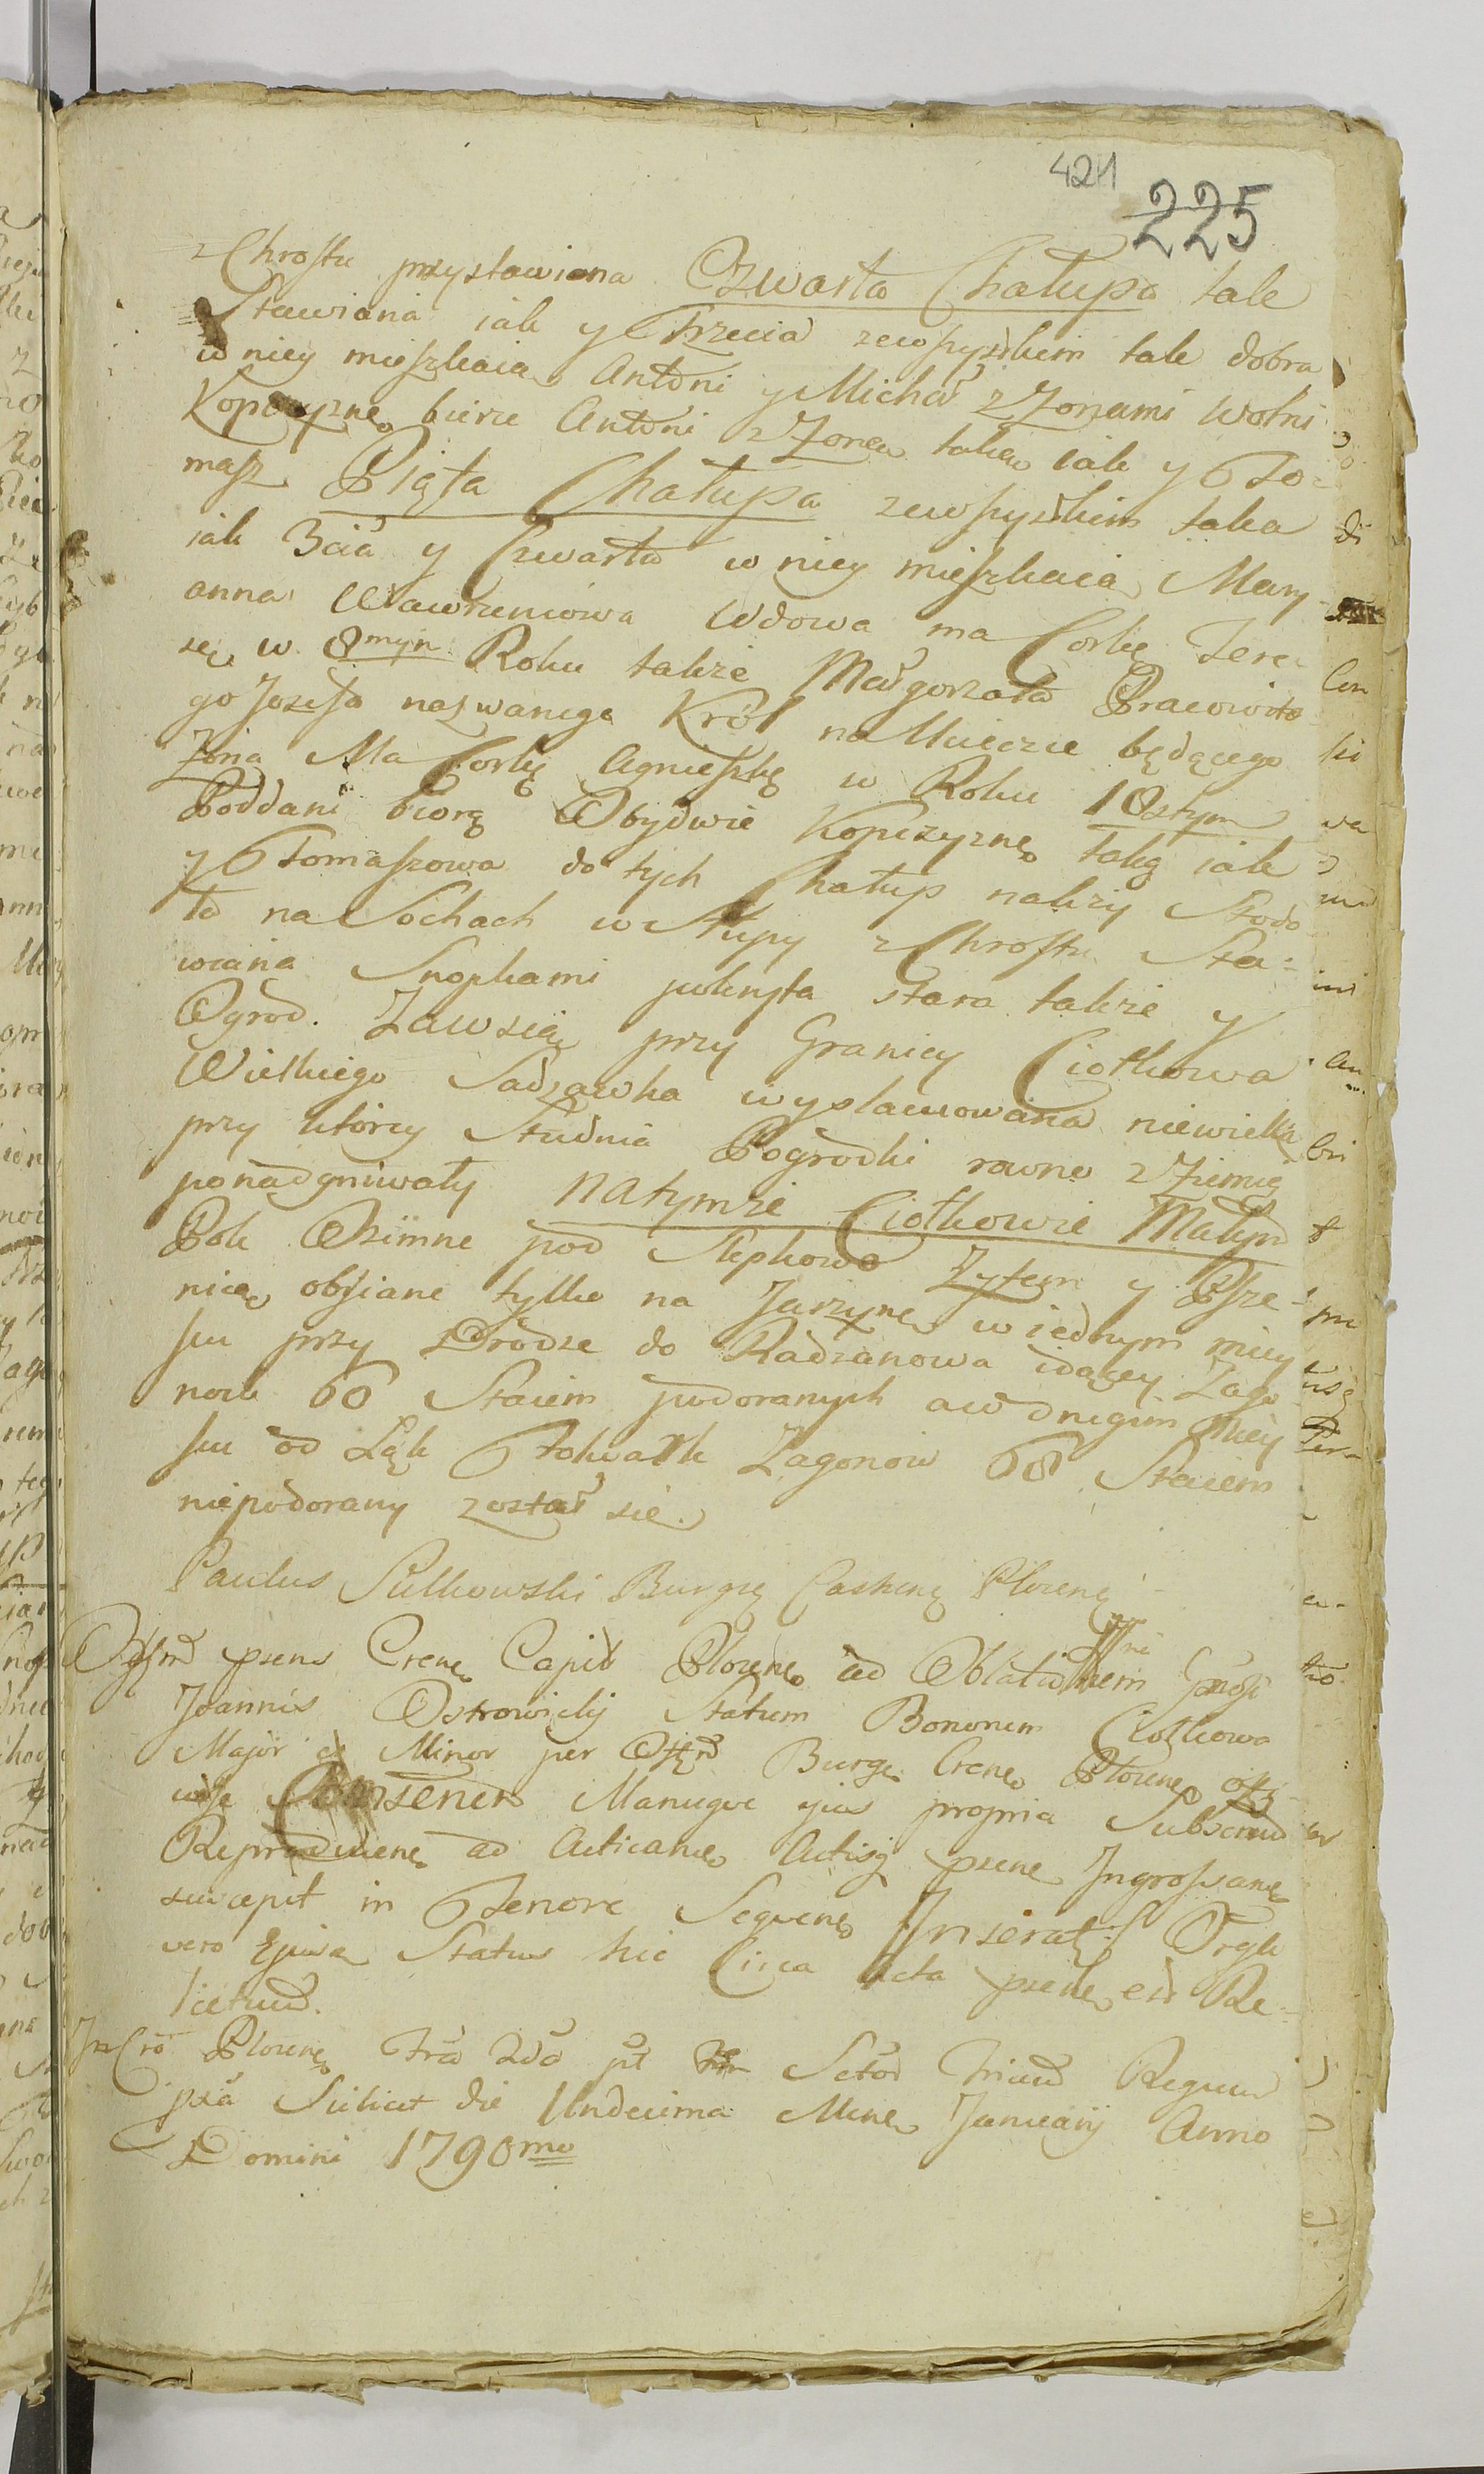 421
225
z Chrostu przystawiona Czwarta Chałupa tak
Stawiana iak y Trzecia zewszystkim tak dobra
w niey mieszkaią Antoni y Michał z Zonami wolni
Kopczyznę bierze Antoni z Zoną taką iak y To=
masz Piąta Chałupa zewszystkim taka
iak 3cia y Czwarta w niey mieszkaią Mary
anna Wawrzencowa Wdowa ma Corkę Tere
sę w 8mym Roku takze Małgorzata Pracowite
go Jozefa nazwanego Król na Ucieczce będącego
Zona Ma Corkę Agnieszkę w Roku 10stym
Poddani biorą Obydwie Kopczyznę taką iak
y Tomaszowa do tych Chałup nalezy Stodo
ła na Sochach w Słupy z Chrostu Sta=
wiana Snopkami pokryta stara takze y
Ogrod. Zawsią przy Granicy Ciołkowa
Wielkiego Sadzawka wyslamowana niewielka
przy ktorey Studnia Pogrodki rowno z Ziemią
ponadgniwały Natymze Ciołkowie Małym
Pole Ozimne pod Slepkowo Zytem y Psze=
nicą obsiane tylko na Jarzynę w iednym miey
scu przy Drodze do Radzanowa idącey Zago
now 60 Staiem podoranych a w drugim Miey
scu od Łąk Folwark Zagonow 68 Staiem
niepodorany został się.
Paulus Sulkowski Burgrę Castrenę Plocenę
Offm psens Crenę Capit Plocenę ad Oblationem Gnosi
Joannis Ostrowicky Statum Bonorum Ciołkowo
Major et Minor per Offm Burge Crenę Plocenę offi
ose Conscenen Manuque ejus propria Subscrum
Reproducenę ad Acticanę Actisq psene Ingrossanę
suscepit in Tenore Sequenę Inseratę Orgle
vero Ejusdę Status hic Circa Acta psene est Re=
lictum.
In Cro Plocenę Fra 2da pt Sctor Trium Regum
pxa Scilicet die Undecima Mene Januarij Anno
Domini 1790mo